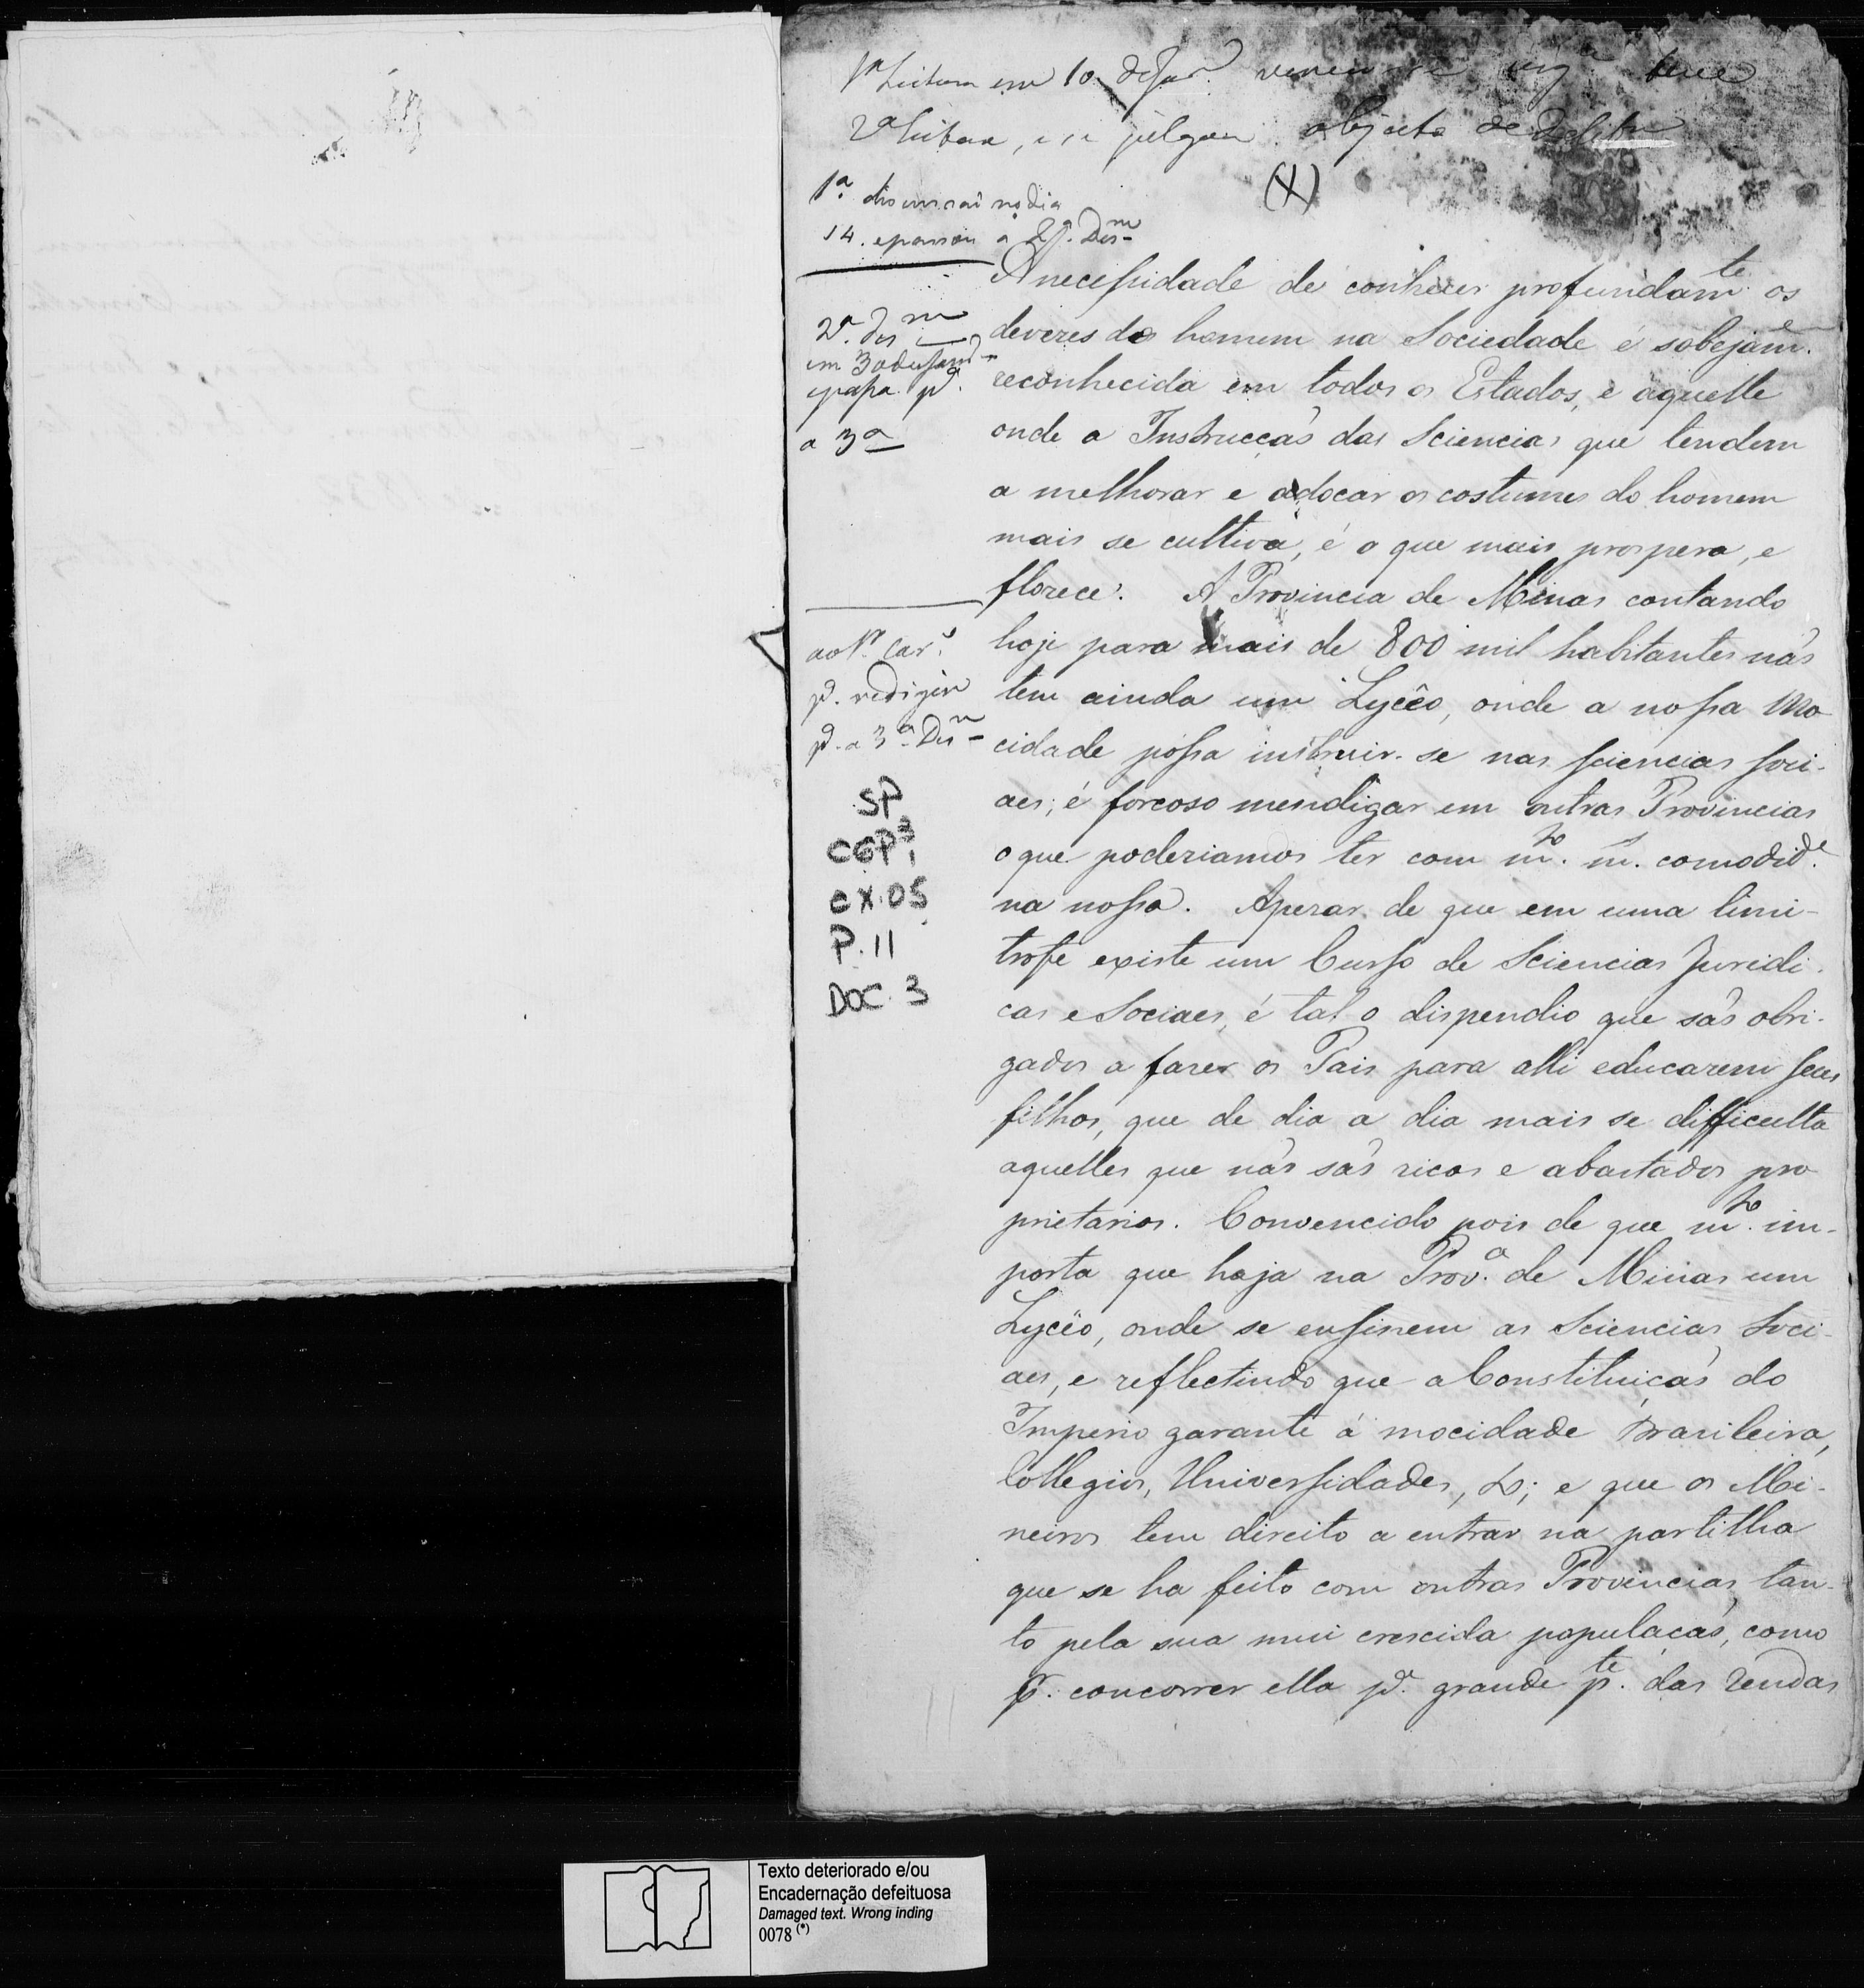 1ª Leitura em 10 de Janrº venceu-se urgª teve
2ª leitura, e se julgou objecto de Delibm
(X)
1ª discussaõ no dia
14. e passou a 2ª. Dism
2ª. dism
em 30 de Janrº
e passa pª.
a 3ª
ao 1º Carº
pª. redigir
pª. a 3ª. Disn
SP
CGP³1
CX.05
P.11
DOC. 3
A necessidade de conhecer profundamte. os
deveres do homem na Sociedade é sobejame.
reconhecida em todos os Estados, e aquelle
onde a Instrucçaõ das Sciencias que tendem
a melhorar e adoçar os costumes do homem
mais se cultiva, é o que mais prospera, e
florece. A Provincia de Minas contando
hoje para mais de 800 mil habitantes naõ
tem ainda um Lycêo, onde a nossa Mo
cidade possa instruir-se nas sciencias soci-
aes; é forçoso mendigar em outras Provincias
o que poderiamos ter com mto. m.s comodide.
na nossa. Apezar de que em uma limi-
trofe existe um Curso de Sciencias Juridi-
cas e Sociaes, é tal o dispendio que saõ obri-
gados a fazer os Pais para alli educarem seus
filhos, que de dia a dia mais se difficulta
aquelles que naõ saõ ricos e abastados pro
prietarios. Convencido pois de que mto. im-
porta que haja na Prova. de Minas um
Lycëo, onde se ensinem as Sciencias Soci-
aes, e reflectindo que a Constituiçaõ do
Imperio garante á mocidade Brasileira,
Collegios, Universidades, &; e que os Mi-
neiros tem direito a entrar na partilha
que se ha feito com outras Provincias, tan-
to pela sua mui crescida populaçaõ, como
pr. concorrer ella pª. grande pte. das Rendas
Texto deteriorado e/ou
Encadernação defeituosa
Damaged text. Wrong inding
0078 (*)